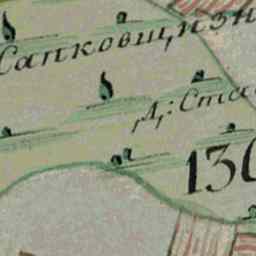 Сапковщизн
Д: Ста
130